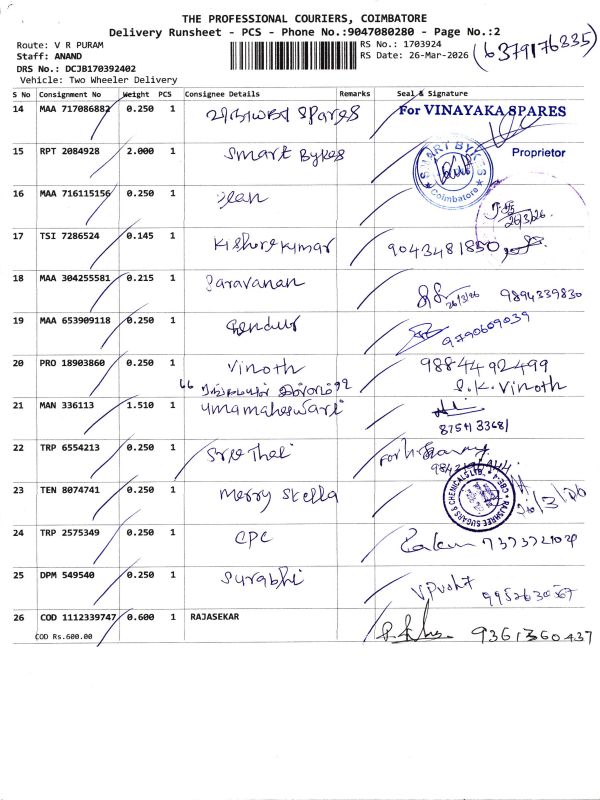 THE PROFESSIONAL COURIERS, COIMBATORE
Delivery Runsheet - PCS - Phone No.:9047080280 - Page No.:2
Route: V R PURAM
RS No.: 1703924
(6379176335)
Staff: ANAND
RS Date: 26-Mar-2026
DRS No.: DCJB170392402
Vehicle: Two Wheeler Delivery
S No Consignment No Weight PCS Consignee Details Remarks Seal & Signature
14 MAA 717086882 0.250 1 விநாயகா Spares For VINAYAKA SPARES
Proprietor
15 RPT 2084928 2.000 1 Smart Bykes SMART BYKES Coimbatore
16 MAA 716115156 0.250 1 26/3/26.
17 TSI 7286524 0.145 1 Kishorekumar 9043481850
18 MAA 304255581 0.215 1 Saravanan 26/3/26 9894339830
19 MAA 653909118 0.250 1 9790609039
20 PRO 18903860 0.250 1 Vinoth 9884492499
S.K. Vinoth
21 MAN 336113 1.510 1 Umamaheswari
22 TRP 6554213 0.250 1 Sree Thei For
23 TEN 8074741 0.250 1 Merry Stella RAJSHREE SUGARS & CHEMICALS LTD. CBE-4 26/3/26
24 TRP 2575349 0.250 1 CPC
25 DPM 549540 0.250 1 Surabhi 9952630567
26 COD 1112339747 0.600 1 RAJASEKAR 9361360437
COD Rs.600.00